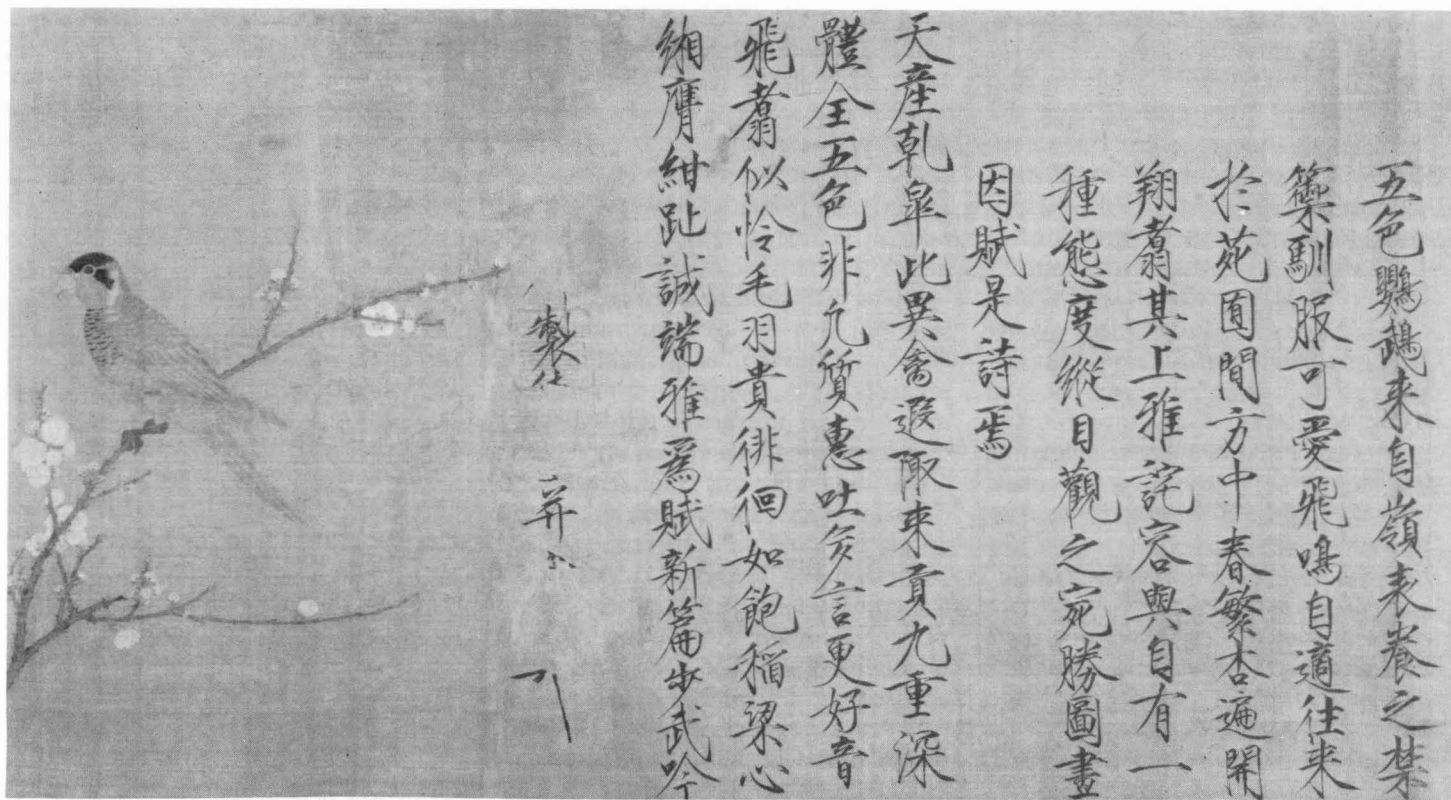 五色鸚鵡来自嶺表養之禁
籞馴服可愛飛鳴自適往来
扵苑囿間方中春繁杏遍開
翔翥其上雅詫容與自有一
種態度縱目觀之宛勝圖畫
因賦是詩焉
天産乾皐此異禽遐陬来貢九重深
體全五色非凡質惠吐多言更好音
飛翥似怜毛羽貴徘徊如飽稲粱心
緗膺紺趾誠端雅爲賦新篇步武吟
製